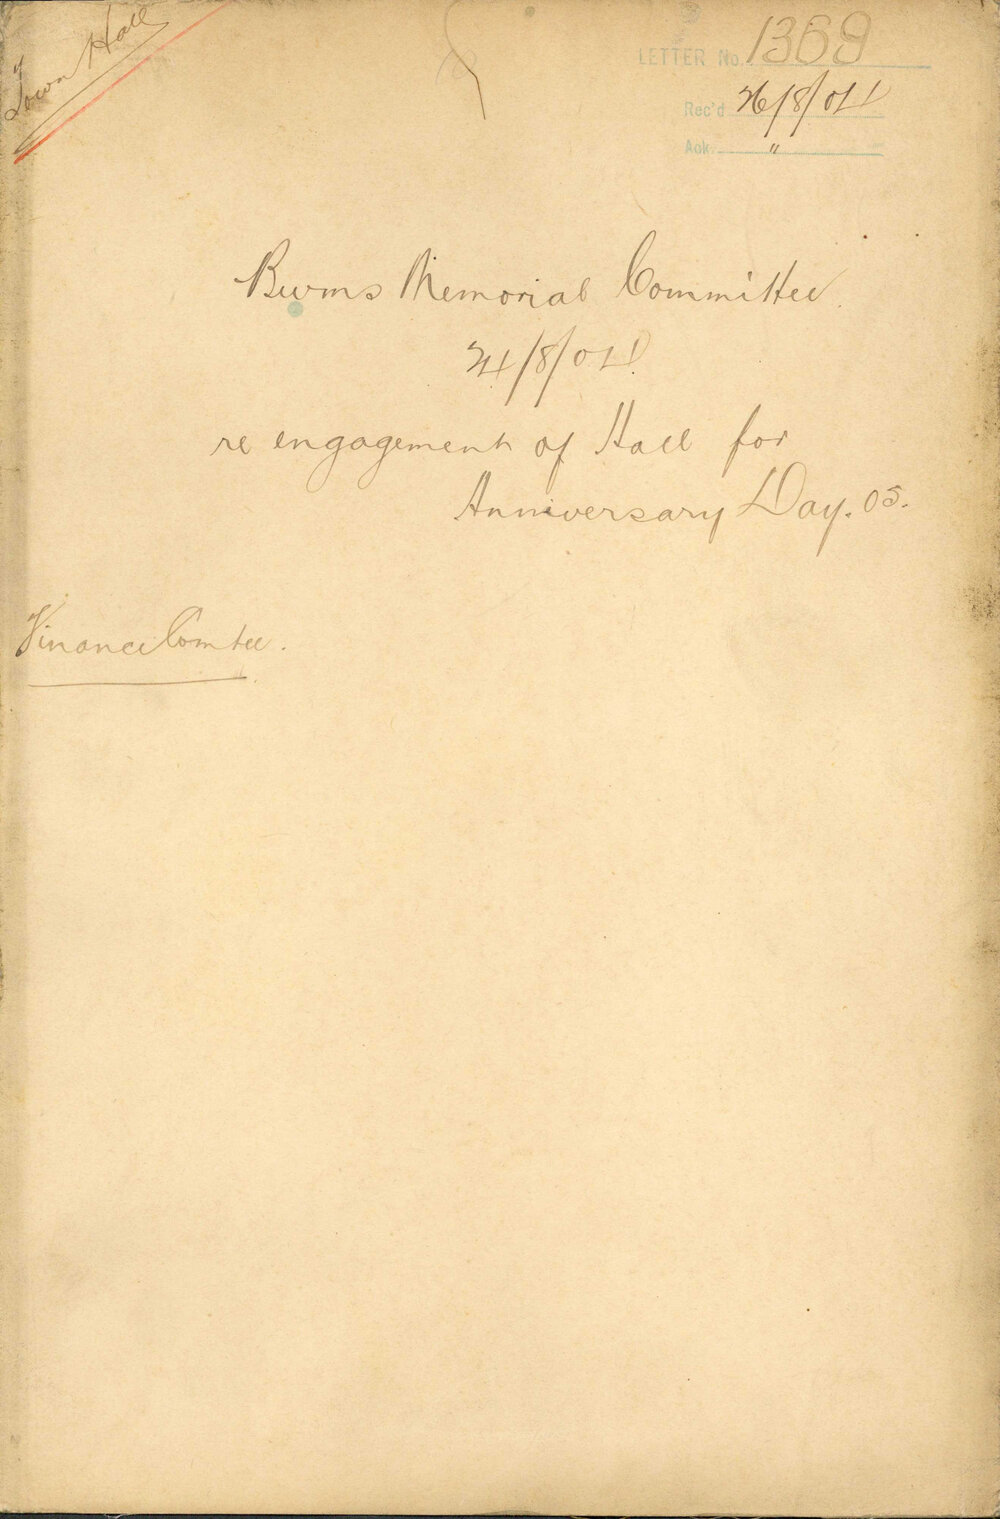 Town Hall
LETTER No. 1369
Rec'd 26/8/04
Ack. "
Burns Memorial Committee.
24/8/04
re engagement of Hall for
Anniversary Day. 05.
Finance Comtee.